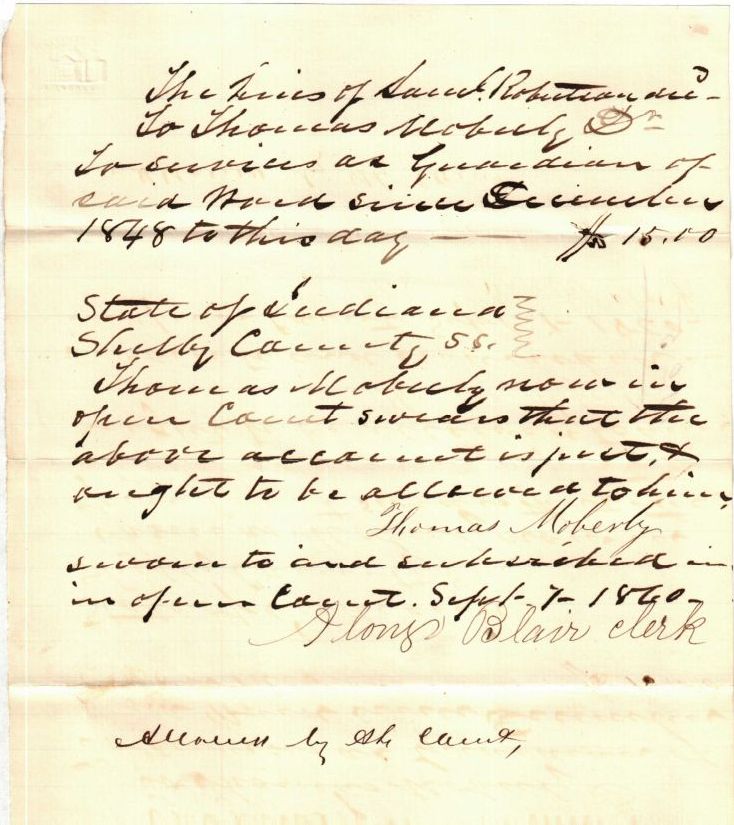 The heirs of Saml. Robertson decd -
To Thomas Moberly Dr
To services as Guardian of
said Ward since December
1848 to this day — — $ 15.00
State of Indiana
Shelby County SS.
Thomas Moberly now in
open Court swears that the
above account is just, &
ought to be allowed to him,
Thomas Moberly
sworn to and subscribed in
in open Court. Sept 7 - 1860 -
Alonzo Blair clerk
Allowed by the Court,